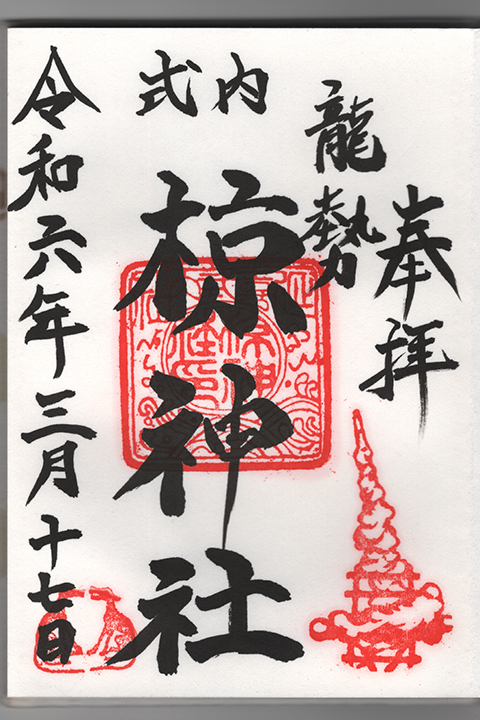 奉拝
龍勢
式内
椋神社
令和六年三月十七日